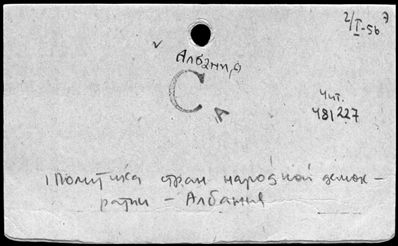 2/I-56
Албания
С
А
Чит.
481227
Политика стран народной демок-
ратии - Албания